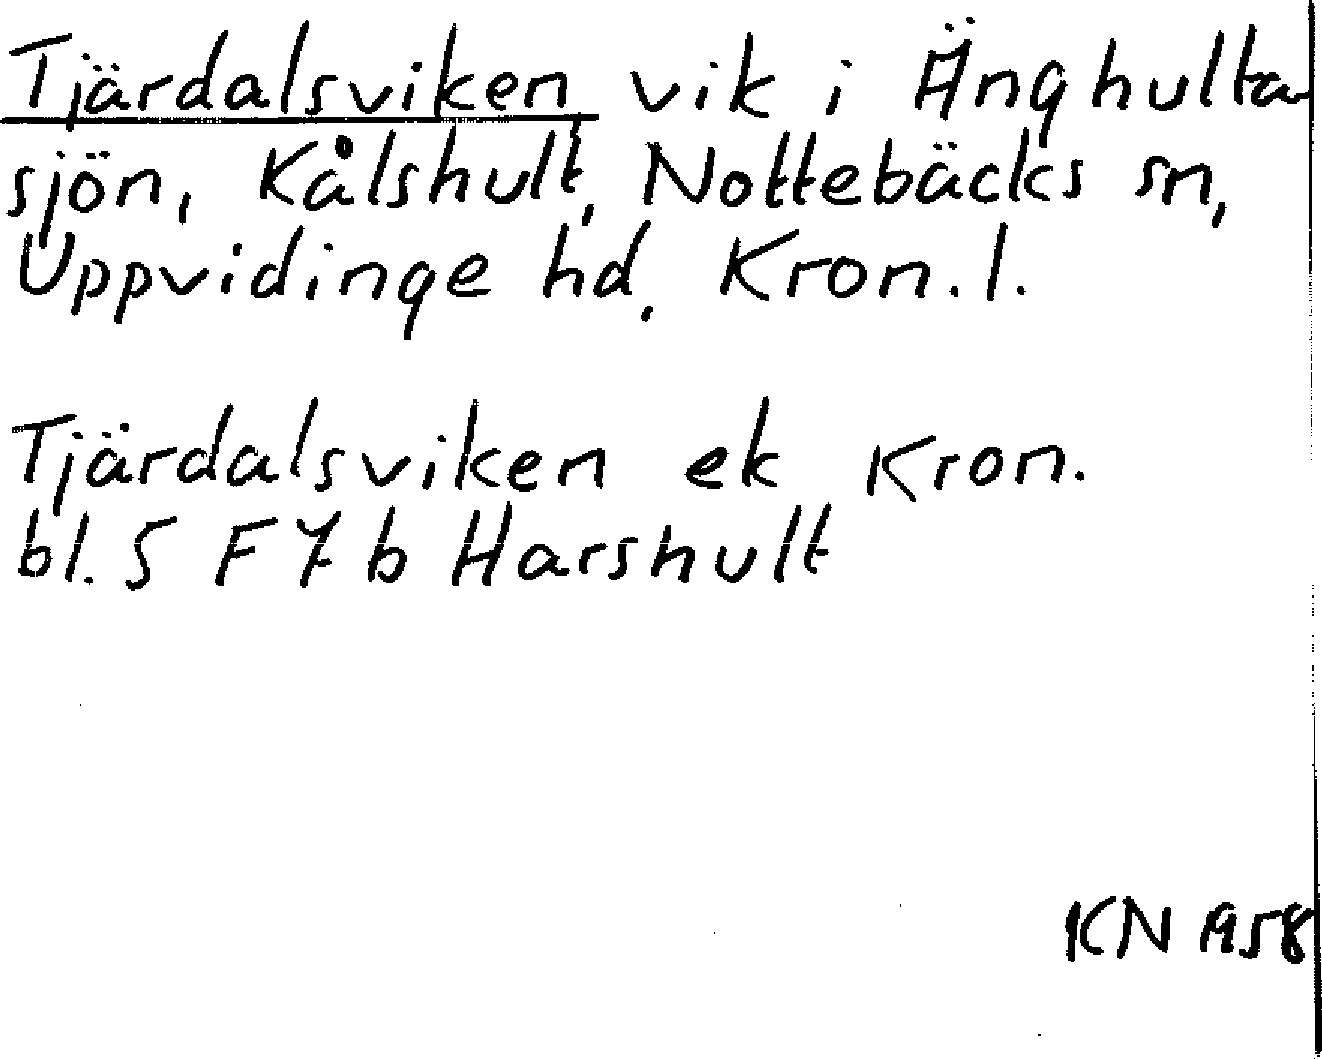 Tjärdalsviken, vik i Änghulta-
sjön, Kålshult, Nottebäcks sn,
Uppvidinge hd, Kron. l.
Tjärdalsviken ek Kron.
bl. 5 F 7 b Harshult
KN 1958